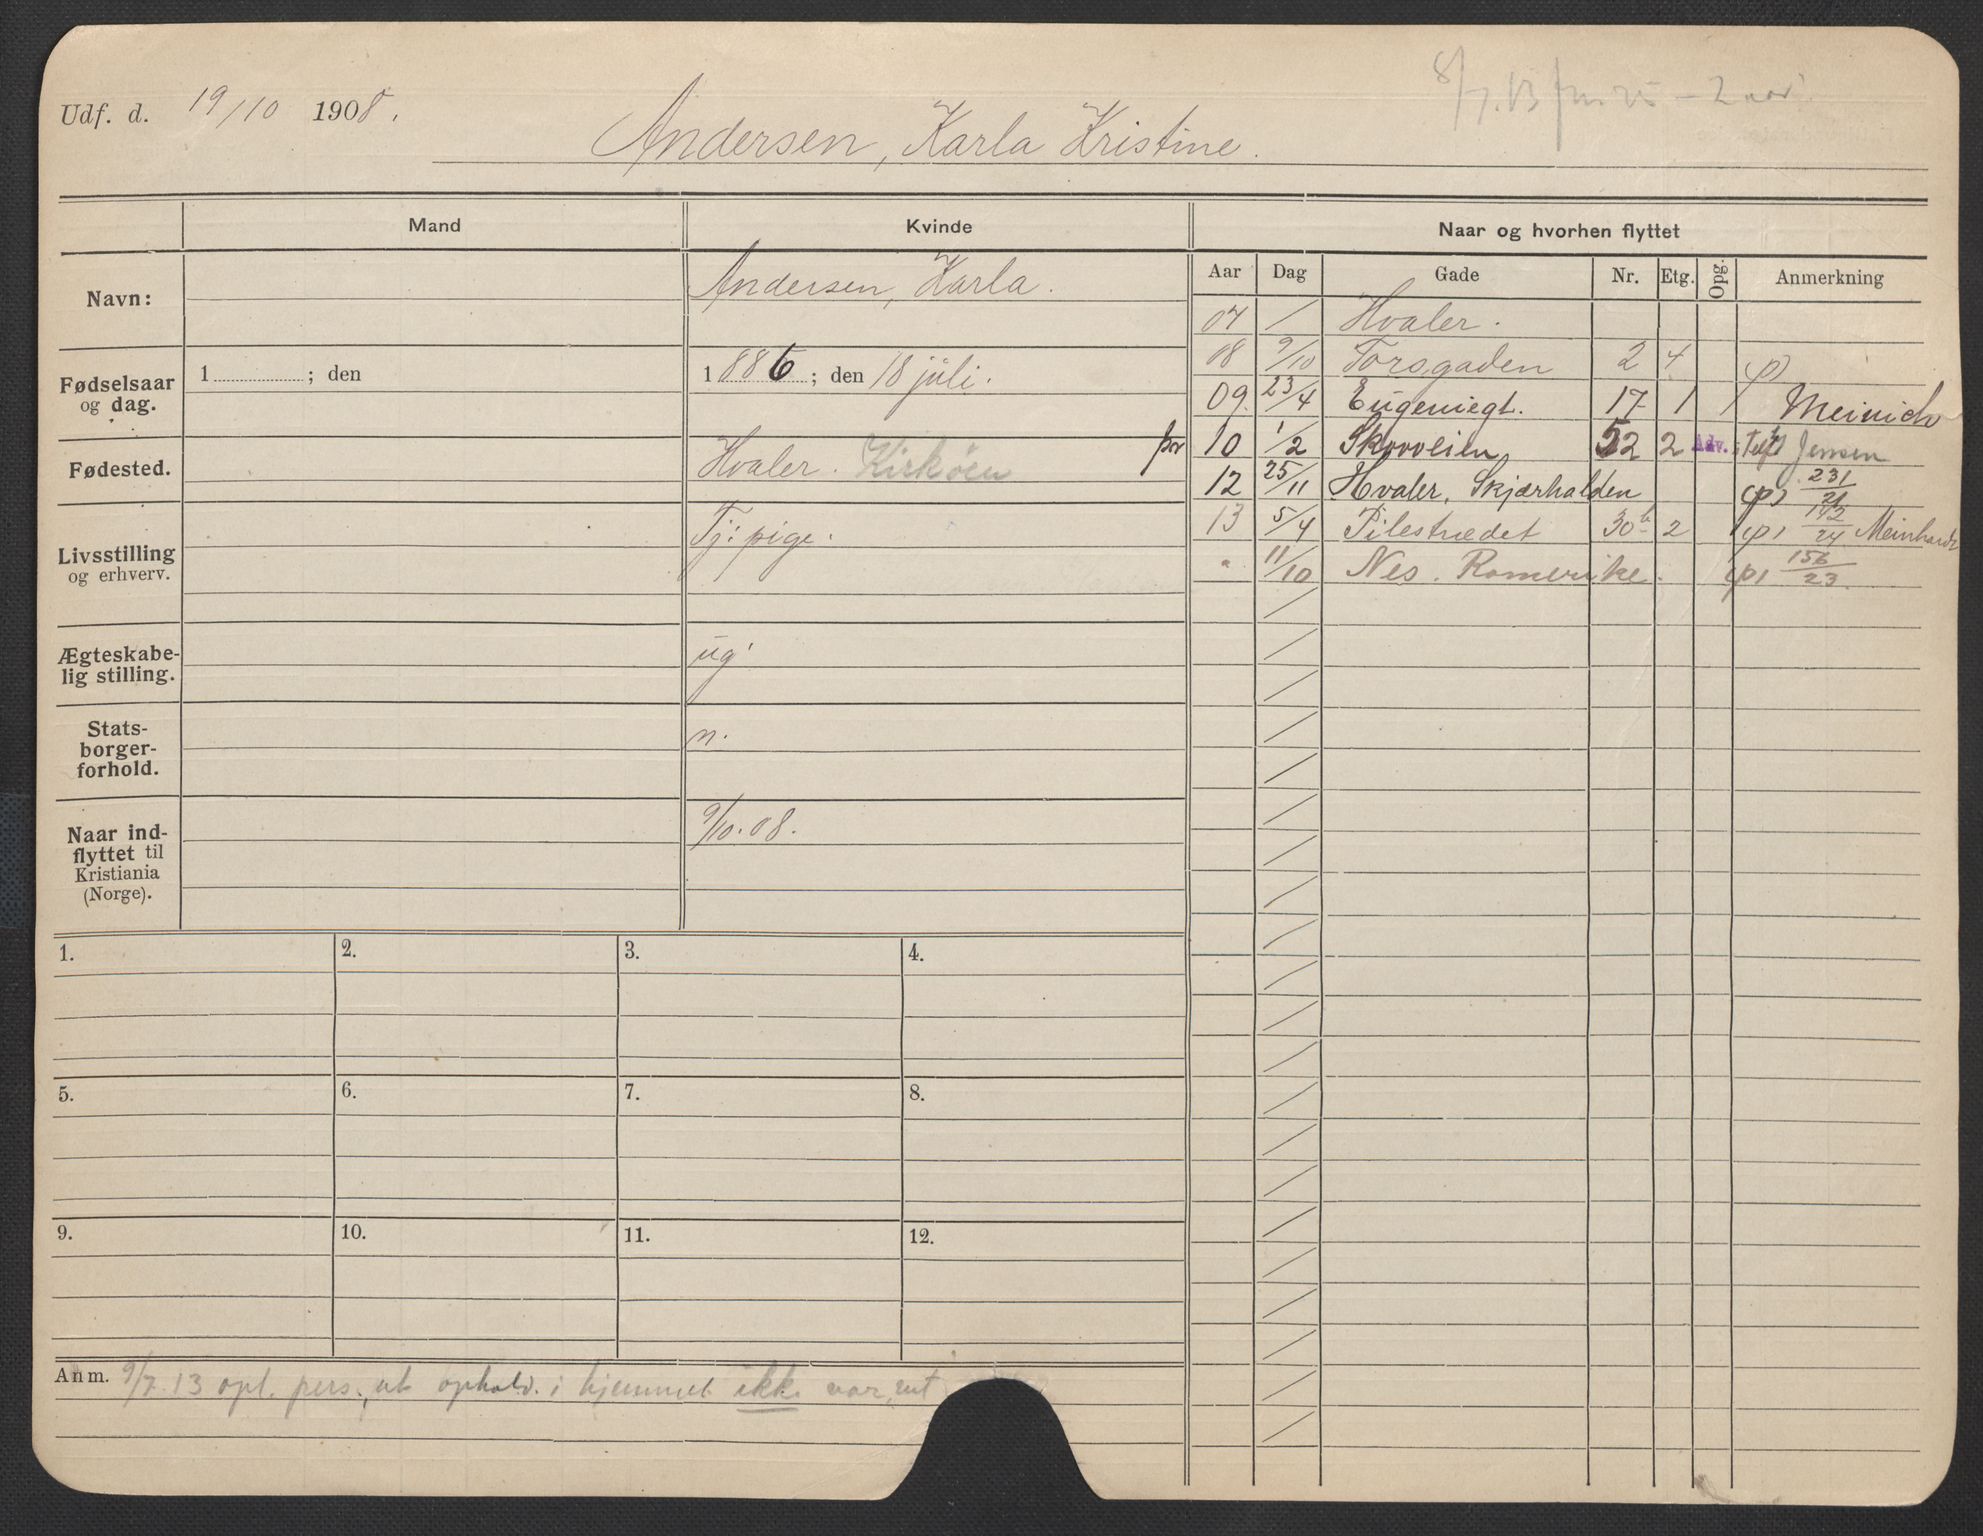 Udf. d. 19/10 1908.
Andersen, Karla Kristine.
Mand
Kvinde
Naar og hvorhen flyttet
Aar Dag Gade Nr. Etg. Opg. Anmerkning
Navn:
Andersen, Karla.
Fødselsaar
og dag.
1 ; den
1886 ; den 18 juli.
Fødested.
Hvaler. Kirköen
Livsstilling
og erhverv.
Tj: pige.
Ægteskabe-
lig stilling.
ug.
Stats-
borger-
forhold.
n.
Naar ind-
flyttet til
Kristiania
(Norge).
9/10.08.
07 / Hvaler.
08 9/10 Torsgaden 2 4 (p)
09. 23/4 Eugeniegt. 17 1 / Meinich
10 1/2 Skovveien 52 2 Adv. Jensen
12 25/11 Hvaler, Skjærhalden (p) 231/21
13 5/4 Pilestrædet 30b 2 (p) 142/24 Meinhardt
" 11/10 Nes. Romerike. (p) 156/23.
1. 2. 3. 4.
5. 6. 7. 8.
9. 10. 11. 12.
Anm. 9/7.13 opl. pers., at ophold. i hjemmet ikke var